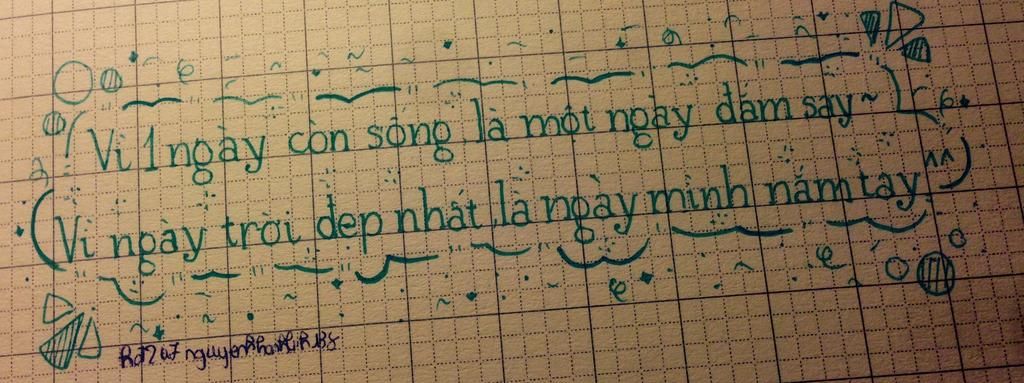 Vì 1 ngày còn sống là một ngày đắm say~
(Vì ngày trời đẹp nhất là ngày mình nắm tay ^^)